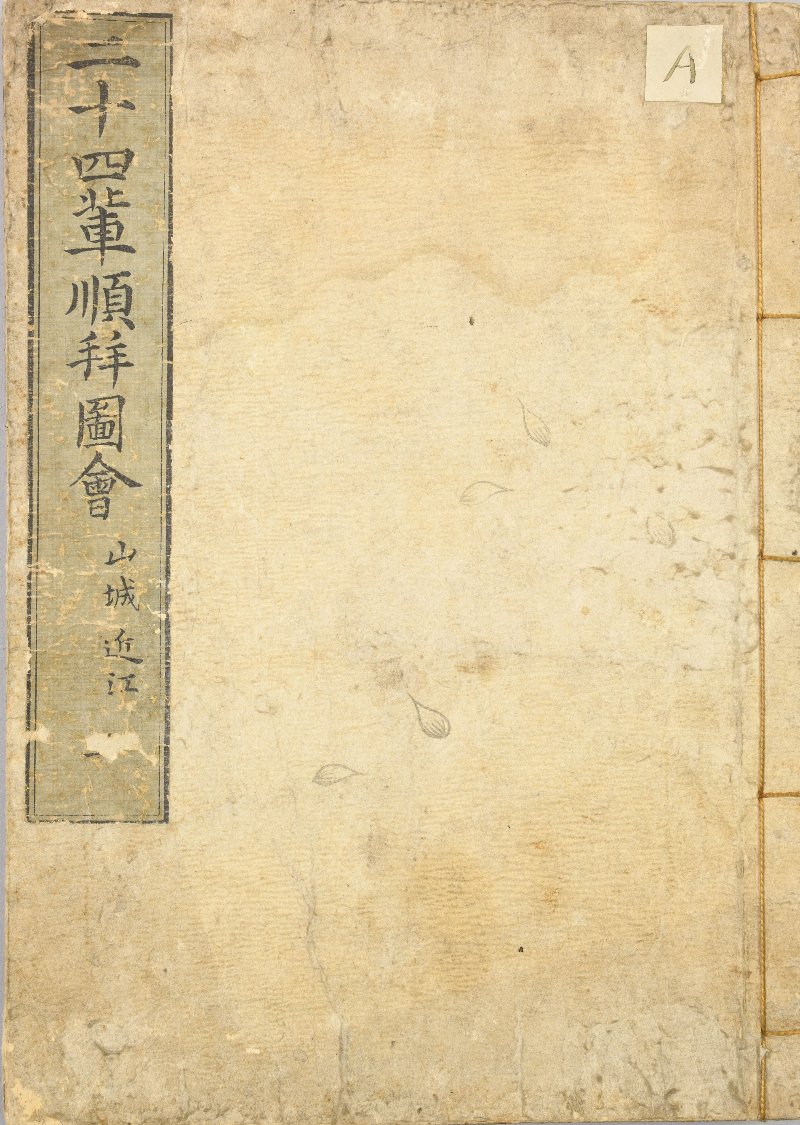 二十四輩順拜圖會
山城 近江
一
A